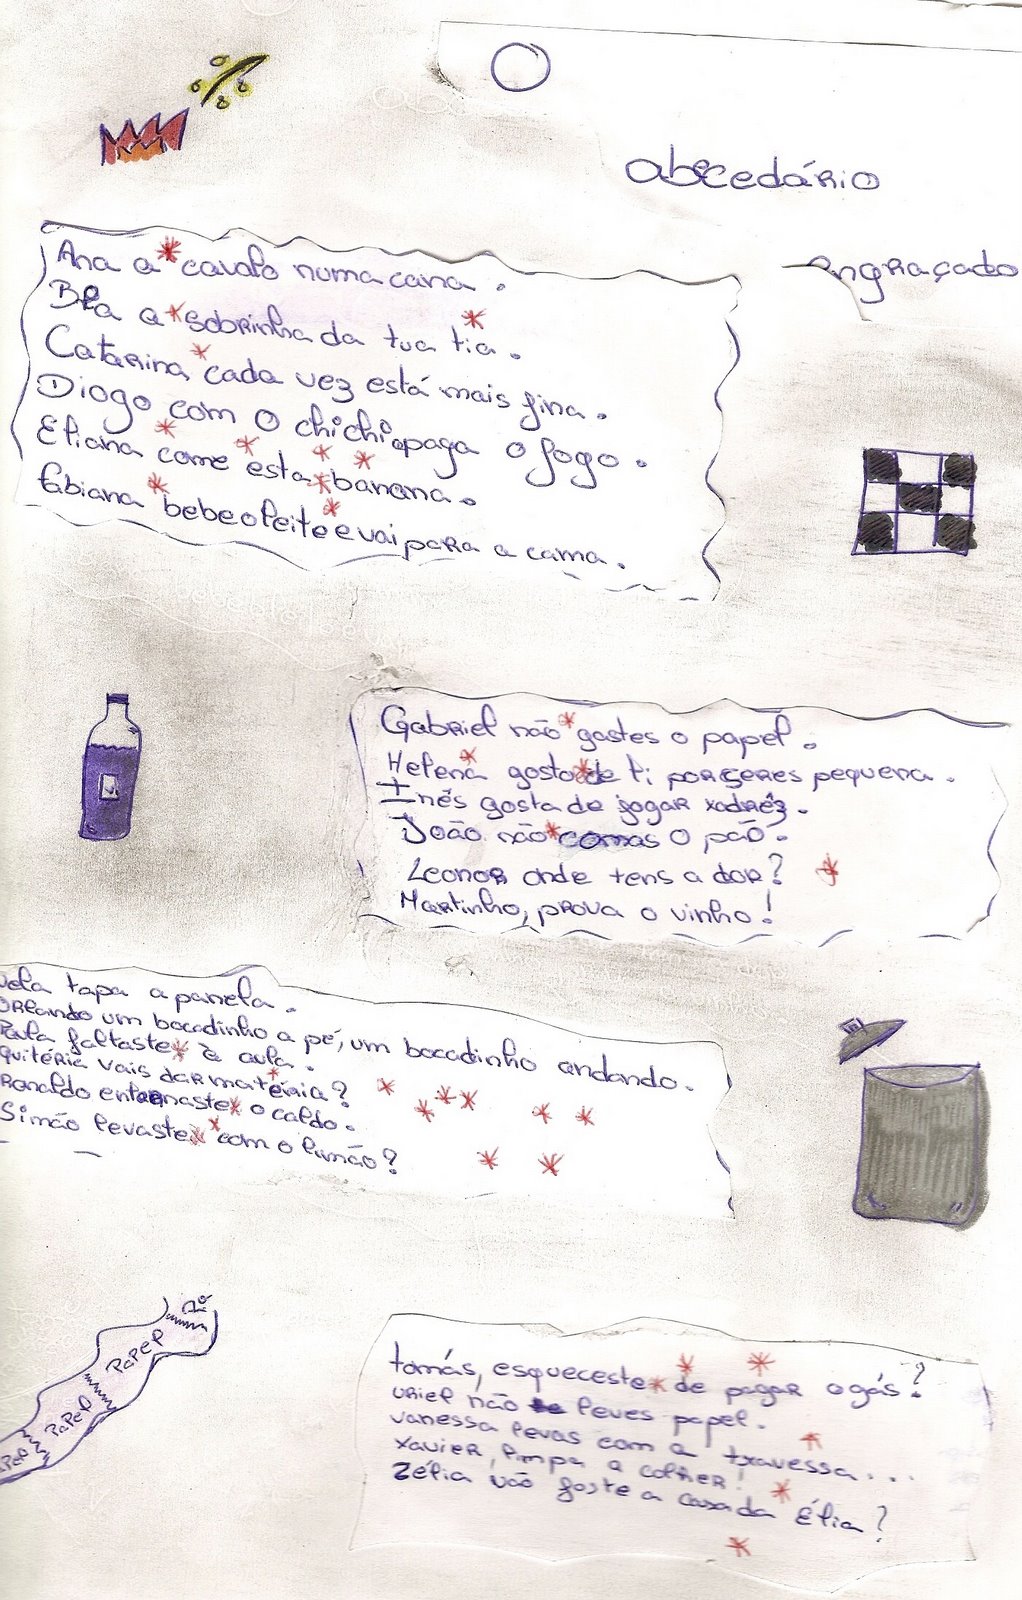 O
abecedário
engraçado
Ana a cavalo numa cana.
Bia a sobrinha da tua tia.
Catarina cada vez está mais fina.
Diogo com o chichi apaga o fogo.
Eliana come esta banana.
Fabiana bebe o leite e vai para a cama.
Gabriel não gastes o papel.
Helena gosto de ti por seres pequena.
Inês gosta de jogar xadrêz.
João não comas o pão.
Leonor onde tens a dor?
Martinho, prova o vinho!
tapa a panela.
Orlando um bocadinho a pé, um bocadinho andando.
Paula faltaste à aula.
Quitéria vais dar matéria?
Ronaldo entornaste o caldo.
Simão levaste com o limão?
PAPEL
PAPEL
PAPEL
tomás, esqueceste de pagar o gás?
Uriel não leves papel.
vanessa levas com a travessa...
xavier, limpa a colher!
Zélia não foste a casa da Élia?